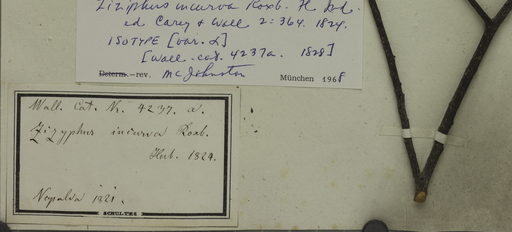 Ziziphus incurva Roxb. Fl. Ind.
ed Carey & Wall 2: 364. 1824.
ISOTYPE [var. α]
[Wall. cat. 4237a. 1828]
Determ.—rev. McJohnston München 1968
Wall. Cat. Nr. 4237. a.
Zizyphus incurva Roxb.
Herb. 1824.
Nepalia 1821.
SCHULTES